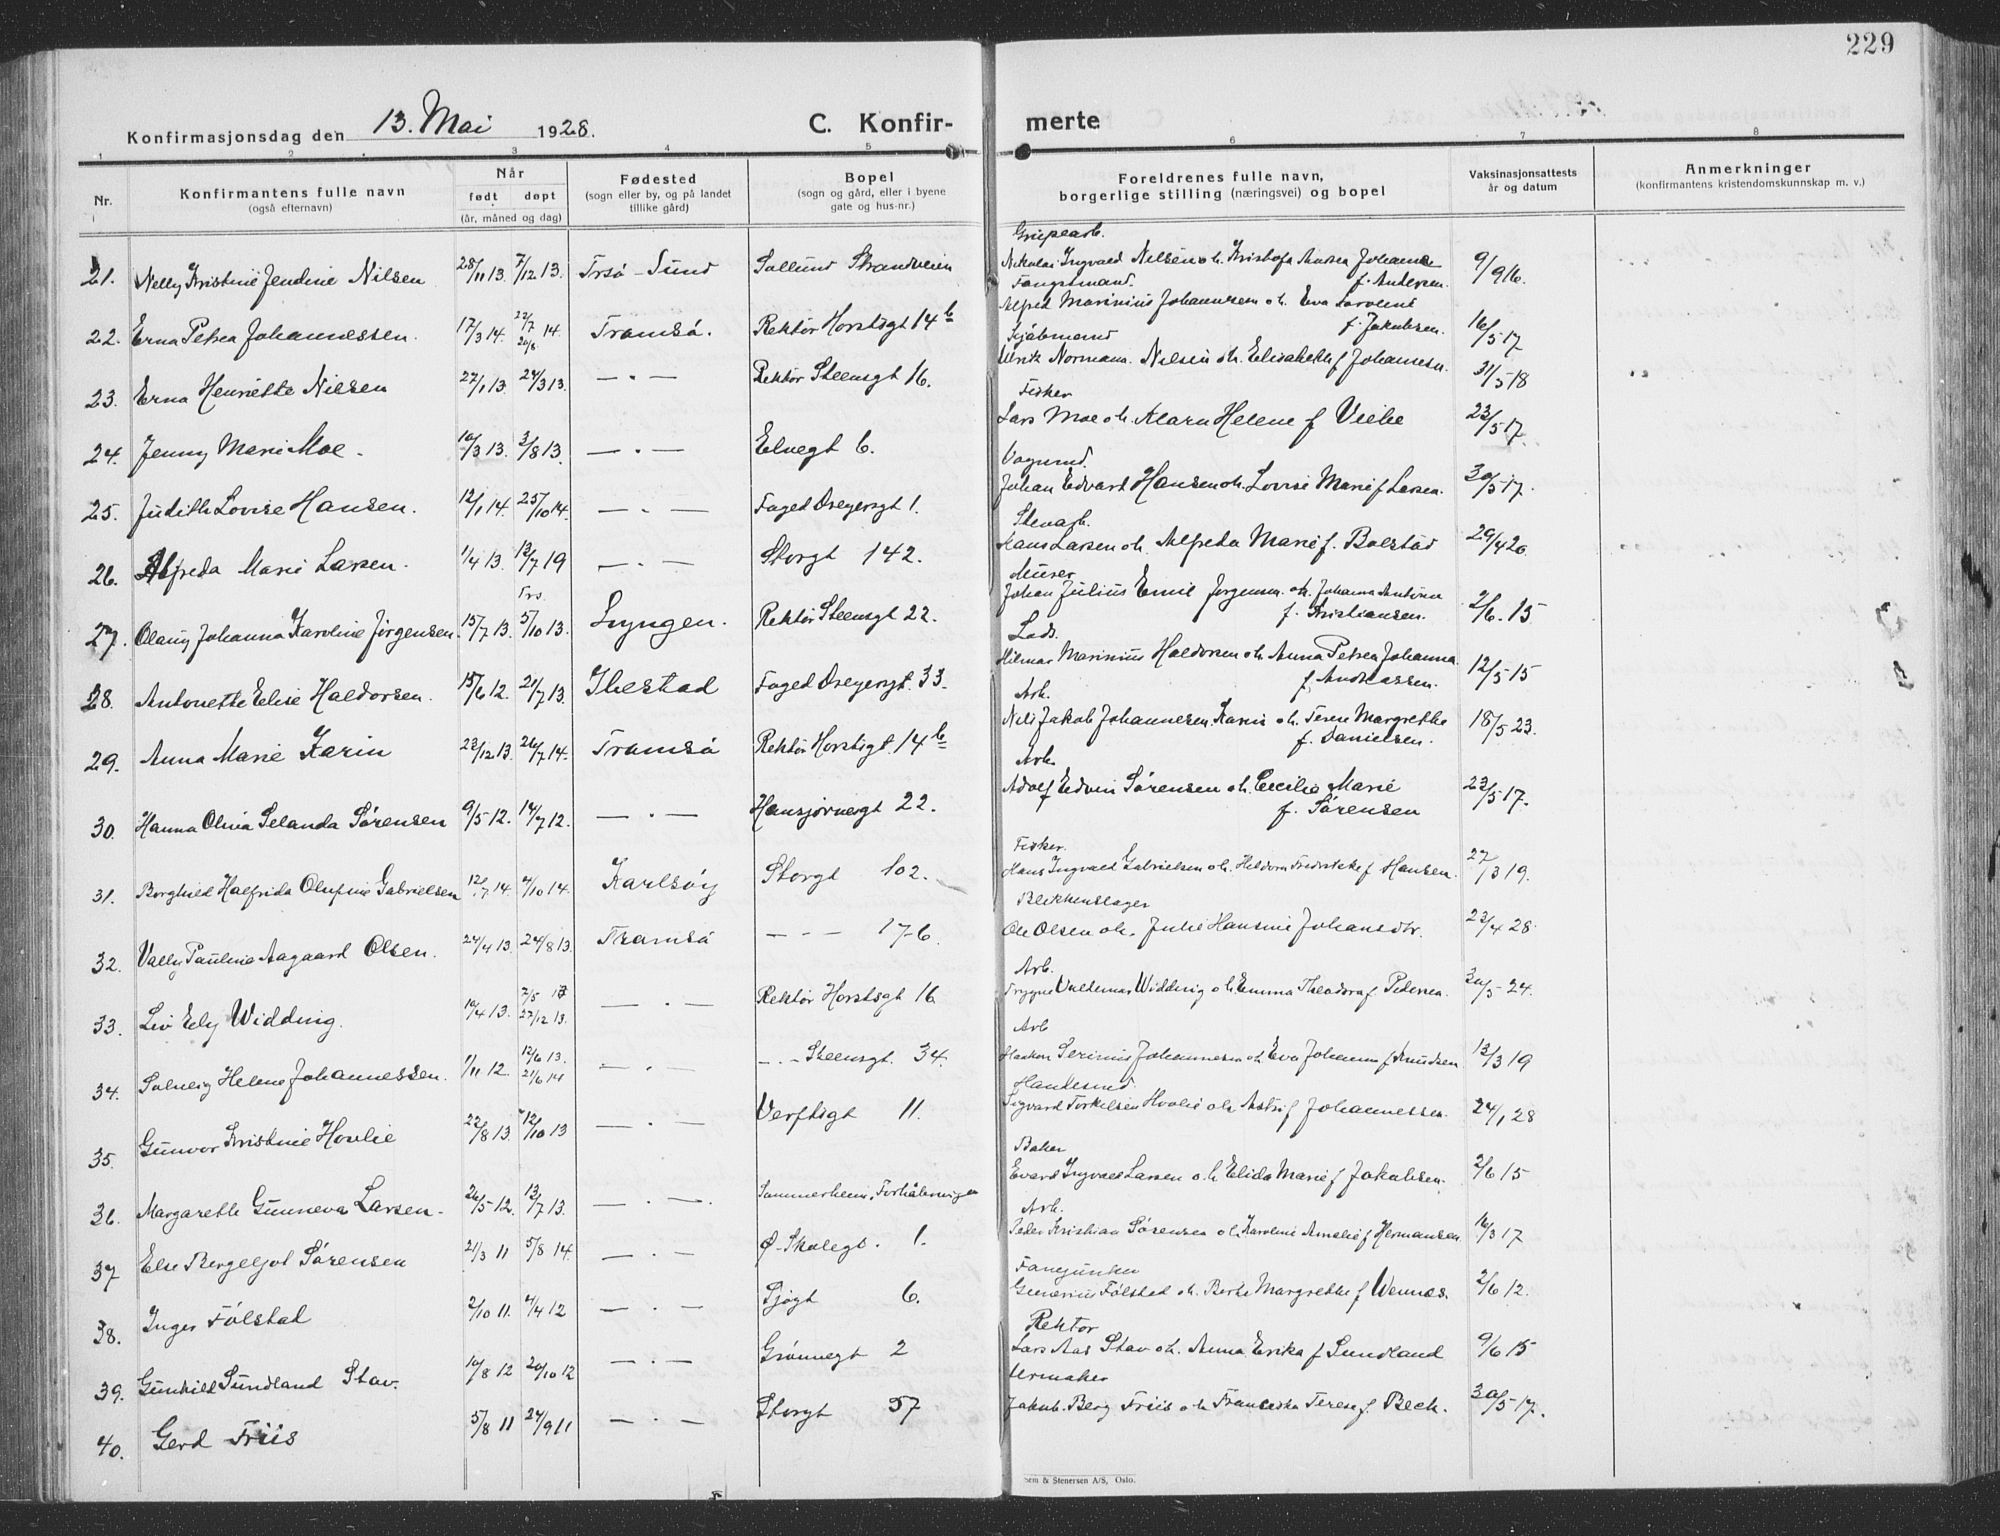 229
Konfirmasjonsdag den 13. Mai 1928.
C. Konfir-
merte
1 2 3 4 5 6 7 8
Nr.
Konfirmantens fulle navn
(også efternavn)
Når
født døpt
(år, måned og dag)
Fødested
(sogn eller by, og på landet
tillike gård)
Bopel
(sogn og gård, eller i byene
gate og hus-nr.)
Foreldrenes fulle navn,
borgerlige stilling (næringsvei) og bopel
Vaksinasjonsattests
år og datum
Anmerkninger
(konfirmantens kristendomskunnskap m. v.)
21. Nelly Kristine Jendine Nilsen 28/11 13. 7/12 13. Trsø-Sund Sollund Strandveien
Nikolai Ingvald Nilsen o h. Kristofa Andrea Johanne f. Andersen. 9/9 16.
Fangstmand.
22. Erna Petrea Johannessen. 17/3 14. 14. Tromsø. Rektor Horstsgt 14 b
Alfred Marinius Johannessen o h. Eva f. Jakobsen. 16/5 17
23. Erna Henriette Nilsen 27/1 13. 24/3 13. — . — Rektor Steensgt 16.
Normann. Nilsen o h. Elisabeth f Johannesn. 31/5 18
Fisker
24. Jenny Marie Moe. 10/3 13. 3/8 13. — . — Elvegt 6.
Lars Moe o h. Maria Helene f Viebe 23/5 17.
Vognmd.
25. Judith Lovise Hansen. 12/1 14. 25/10 14. — . — Foged Dreyersgt 1.
Johan Edvard Hansen o h. Lovise Marie f Larsen. 30/5 17.
Stenarb.
26. Alfreda Marie Larsen. 1/4 13. 13/7 19 — . — Storgt 142.
Hans Larsen o h. Alfreda Marie f. Bolstad 29/4 20.
Murer
27. Olaug Johanna Karoline Jørgensen. 15/7 13. 5/10 13. Lyngen. Rektor Steensgt 22.
Johan Julius Emil Jørgensen. o h. Johanna f. Kristiansen. 2/6. 15
Lods.
28. Antonette Elise Haldorsen. 15/6 12. 20/7 13. Ibestad Foged Dreyersgt. 33.
Hilmar Marinius Haldorsen o h. Anna Petrea Johanna f. Andreassen. 12/5 15
Arb.
29. Anna Marie Karin 23/12 13. 26/7 14. Tromsø Rektor Horstsgt. 14 b
Nils Jakob Johannesen. Karin o h. Margrethe f. Danielsen. 18/5 23.
Arb.
30. Hanna Olivia Selanda Sørensen 9/5 12. 14/7 12. — . — Hansjørnesgt 22.
Adolf Edvin Sørensen o h. Cecilie Marie f. Sørensen 23/5 17.
Fisker.
31. Borghild Halfrida Olufine Gabrielsen 12/7 14. 4/10 14. Karlsøy Storgt 102.
Hans Ingvald Gabrielsen o h. Fredrikke f Hansen. 27/3 19.
Blikkenslager
32. Vally Pauline Aagaard Olsen. 24/4 13. 24/8 13. Tromsø — — — 176.
Ole Olsen o h. Julie Hansine Johansdtr. 23/4 28.
Arb.
33. Liv Ely Widding. 10/4 13. 27/12 13. — . — Rektor Horstsgt 16
Trygve Valdemar Widding o h. Emma Theodora f. Pedersen. 30/5 24.
Arb
34. Solveig Helene Johannessen. 1/11 12. 12/6 13. 21/6 14 — . — —.— Steensgt. 34.
Haakon Johannesen o h. Eva Johanna f Knudsen 13/3 19
Handesmd.
35. Gunvor Kristine Hovlie 22/8 13. 12/10 13 — . — Verftsgt 11.
Sigvard Torkelsen Hovlie o h. f Johannessen. 24/1 28
Baker
36. Margareth Gunneva Larsen. 26/5 12. 13/7 13. — . —
Ingvald Larsen o h. Elida Marie f Jakobsen. 2/6 15
Arb.
37 Else Bergeljot Sørensen 21/3 11 5/8 14. — . — Ø-Skolegt. 1.
Peder Kristian Sørensen o h. Karoline Amalie f Hermansen 16/3 17
Fanejunker
38. Inger Følstad 2/10 11. 4/4 12 — . — Sjøgt 6.
Følstad o h. Berte Margrethe f Wennes. 2/6 12.
Rektor
39. Gunhild Sundland Stav. 10/8 12 20/10 12 — . — Grønnegt 2
Lars Aas Stav o h. Anna Erika f Sundland 9/6 15
Urmaker
40. Gerd Friis 5/8 11 24/9 11 — . — Storgt 57
Jakob. Berg Friis o h Franciska Terese f. Bech. 30/5 17.
Sem & Stenersen A/S, Oslo.